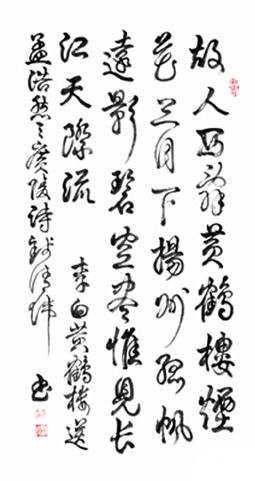 故人西辭黄鶴樓煙
花三月下揚州孤帆
遠影碧空盡惟見長
江天際流
李白黄鶴樓送
孟浩然之廣陵詩
书